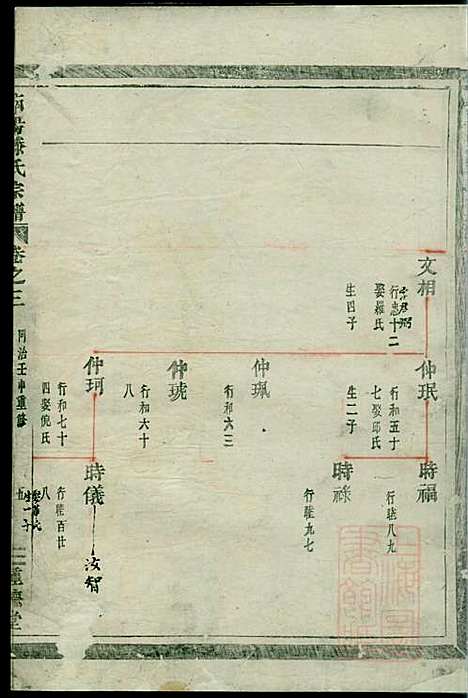 文相
字君弼
行忠十二
娶羅氏
生四子
仲珉
行和五十
七娶邱氏
生二子
仲珮
行和六三
仲琥
行和六十
八
仲珂
行和七十
四娶倪氏
時福
行睦八九
時祿
行睦九七
時儀
行睦百廿
八
汝智
生一子
南陽滕氏宗譜
卷之三
同治壬申重修
五